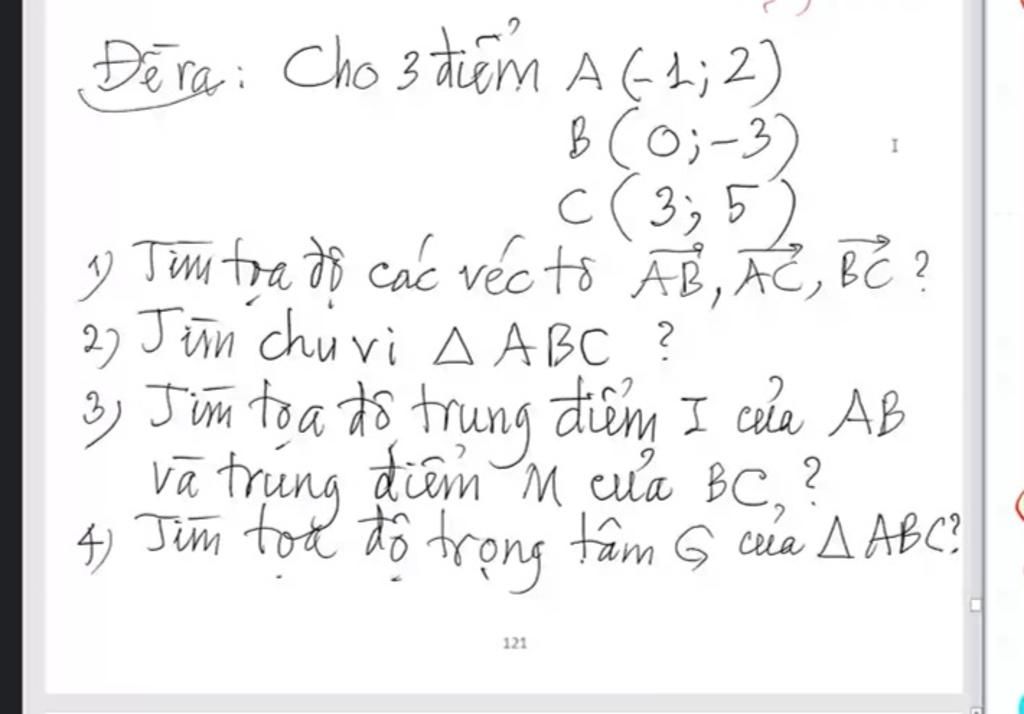 Đề ra: Cho 3 điểm A(-1; 2)
B(0; -3)
C(3; 5)
1) Tìm tọa độ các véc tơ AB, AC, BC ?
2) Tìm chu vi Δ ABC ?
3) Tìm tọa độ trung điểm I của AB
và trung điểm M của BC ?
4) Tìm tọa độ trọng tâm G của Δ ABC?
121